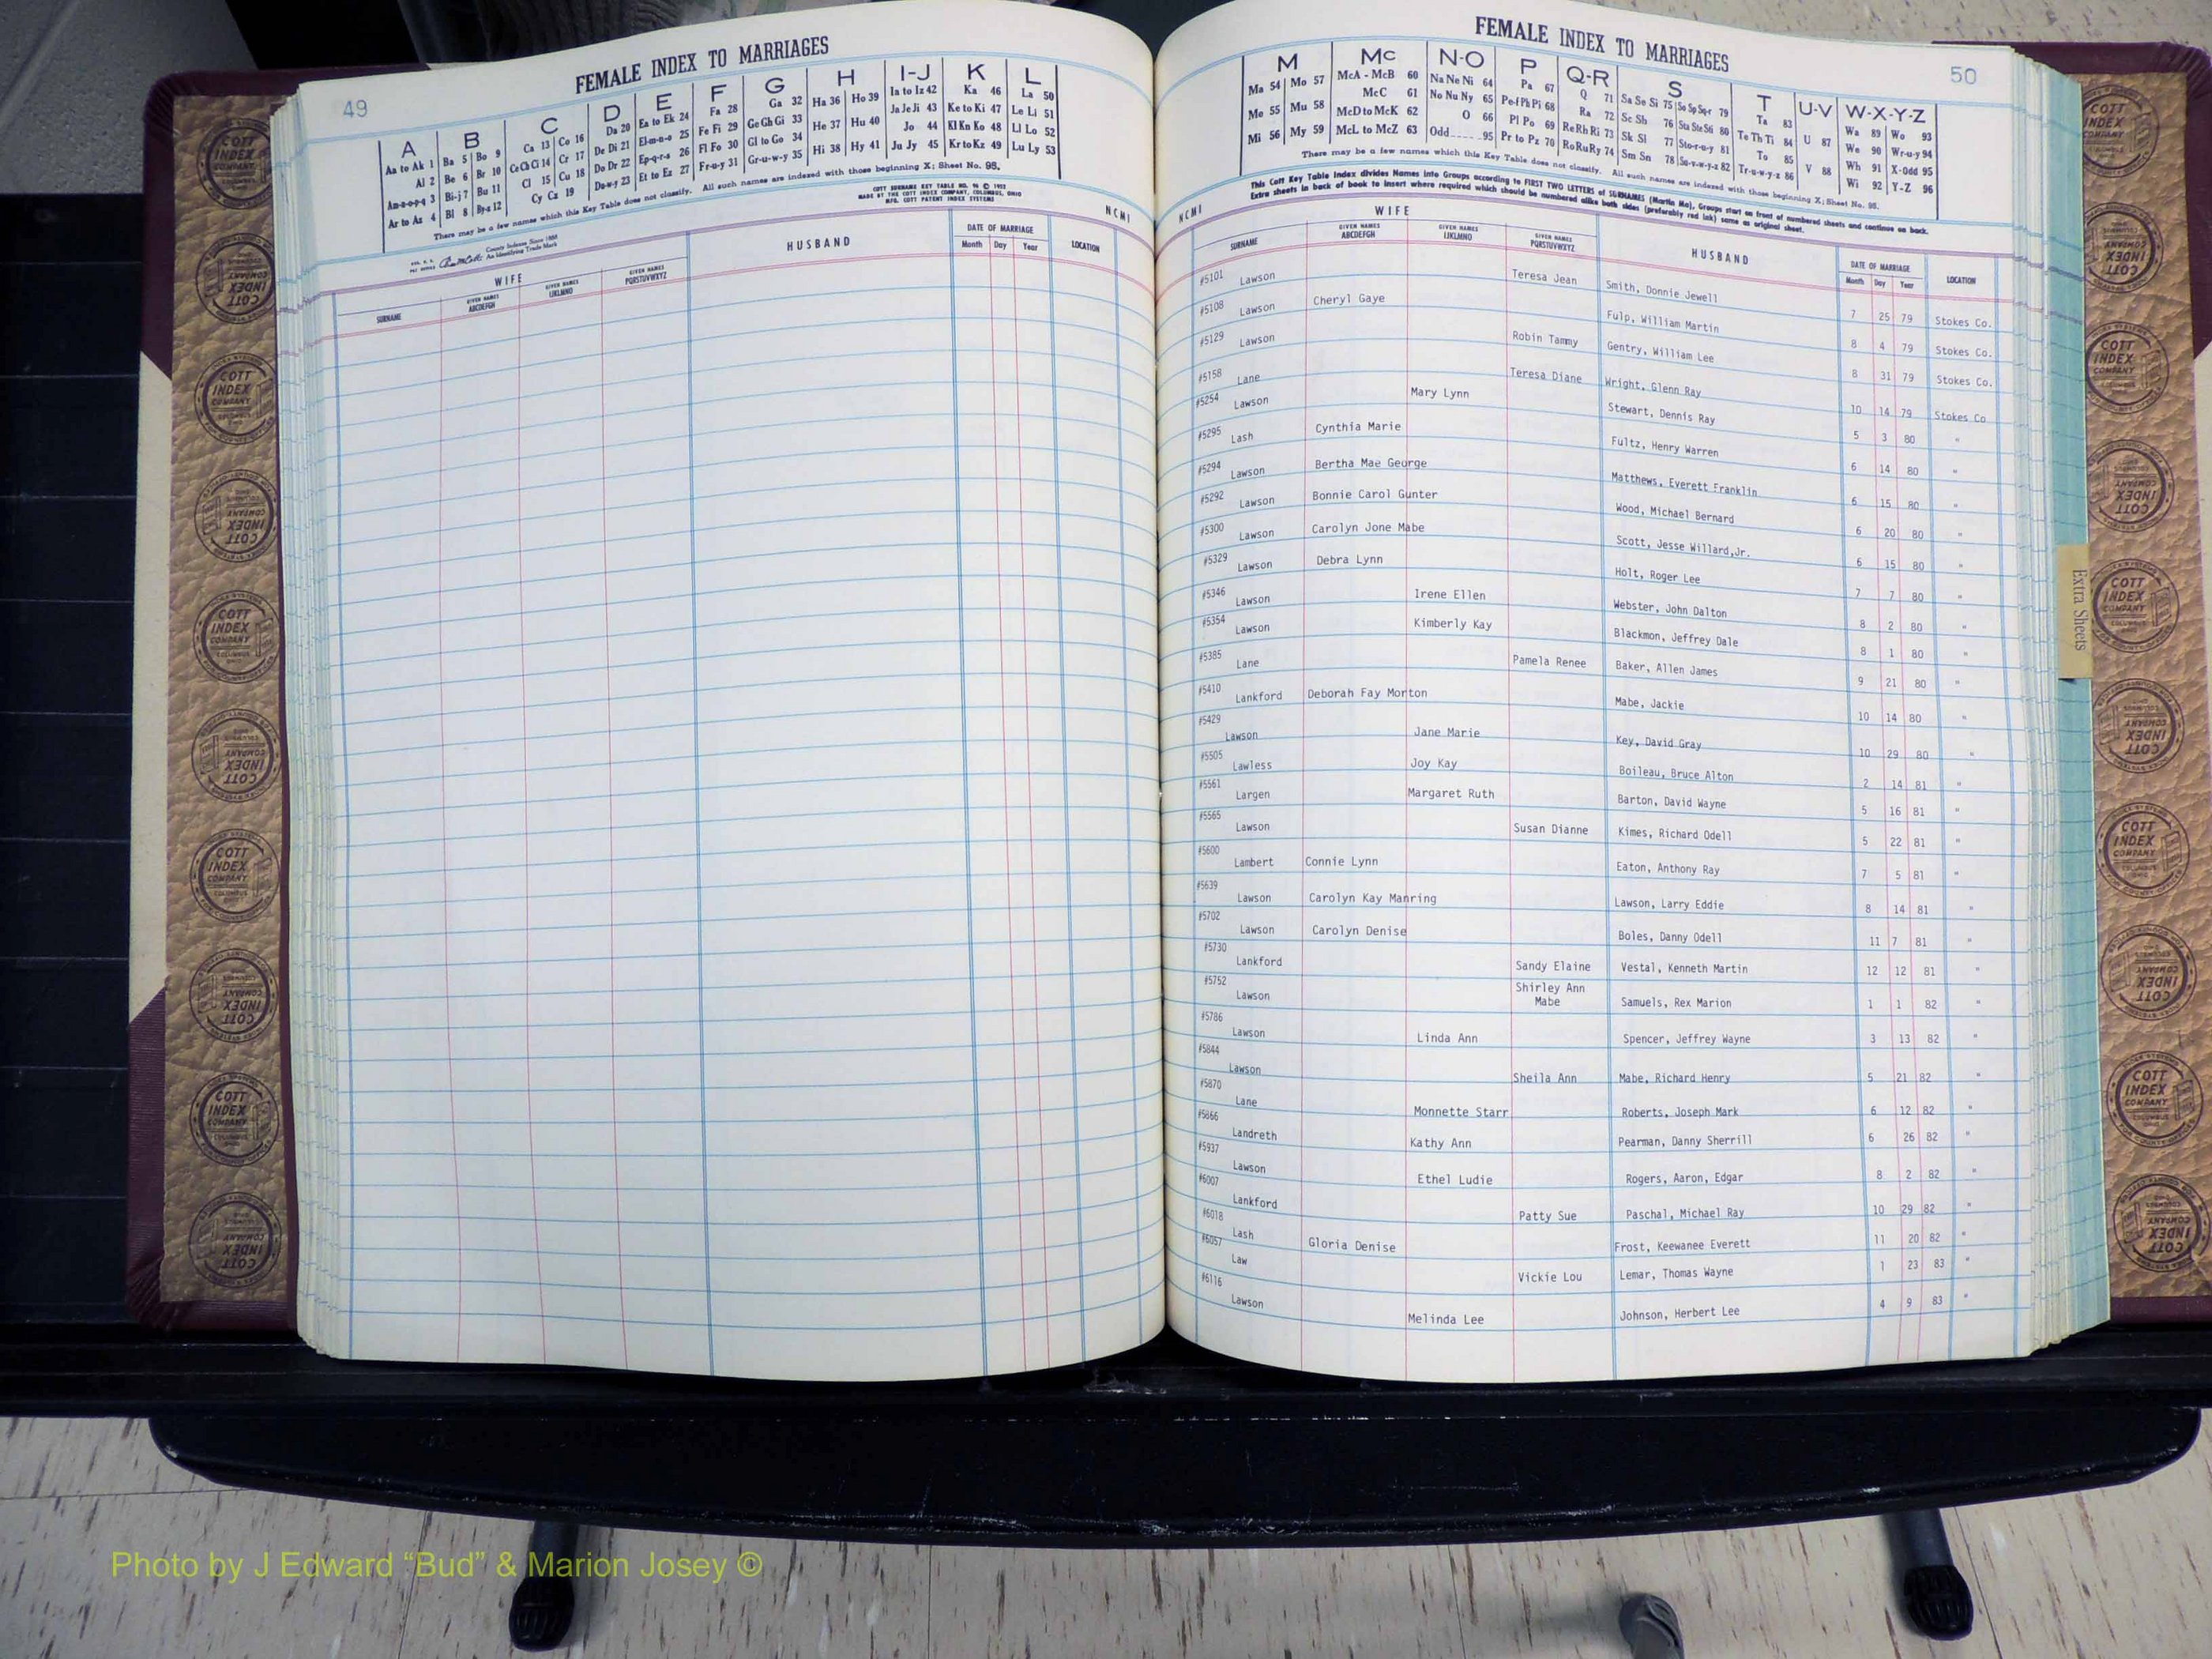 49
FEMALE INDEX TO MARRIAGES
A B C D E F G H I-J K L
Aa to Ak 1 Ba 5 Bo 9 Ca 13 Co 16 Da 20 Ea to Ek 24 Fa 28 Ga 32 Ha 36 Ho 39 Ia to Iz 42 Ka 46 La 50
Al 2 Be 6 Br 10 Ce Ch Ci 14 Cr 17 De Di 21 El-m-n-o 25 Fe Fi 29 Ge Gh Gi 33 He 37 Hu 40 Ja Je Ji 43 Ke to Ki 47 Le Li 51
Am-n-o-p-q 3 Bi-j 7 Bu 11 Cl 15 Cu 18 Do Dr 22 Ep-q-r-s 26 Fl Fo 30 Gl to Go 34 Hi 38 Hy 41 Jo 44 Kl Kn Ko 48 Ll Lo 52
Ar to Az 4 Bl 8 By-z 12 Cy Cz 19 Du-w-y 23 Et to Ez 27 Fr-u-y 31 Gr-u-w-y 35 Ju Jy 45 Kr to Kz 49 Lu Ly 53
There may be a few names which this Key Table does not classify. All such names are indexed with those beginning X; Sheet No. 95.
COTT SURNAME KEY TABLE NO. 96 © 1953
MADE BY THE COTT INDEX COMPANY, COLUMBUS, OHIO
MFG. COTT PATENT INDEX SYSTEMS
County Indexes Since 1888
An Identifying Trade Mark
NCMI
WIFE HUSBAND DATE OF MARRIAGE LOCATION
SURNAME GIVEN NAMES ABCDEFGH GIVEN NAMES IJKLMNO GIVEN NAMES PQRSTUVWXYZ Month Day Year
FEMALE INDEX TO MARRIAGES
50
M Mc N-O P Q-R S T U-V W-X-Y-Z
Ma 54 Mo 57 McA - McB 60 Na Ne Ni 64 Pa 67 Q 71 Sa Se Si 75 So Sp Sq-r 79 Ta 83 U 87 Wa 89 Wo 93
Me 55 Mu 58 McC 61 No Nu Ny 65 Pe-f Ph Pi 68 Ra 72 Sc Sh 76 Sta Ste Sti 80 Te Th Ti 84 V 88 We 90 Wr-u-y 94
Mi 56 My 59 McD to McK 62 O 66 Pl Po 69 Re Rh Ri 73 Sk Sl 77 Sto-r-u-y 81 To 85 Wh 91 X-Odd 95
McL to McZ 63 Odd 95 Pr to Pz 70 Ro Ru Ry 74 Sm Sn 78 Su-v-w-y-z 82 Tr-u-w-y-z 86 Wi 92 Y-Z 96
There may be a few names which this Key Table does not classify. All such names are indexed with those beginning X; Sheet No. 95.
This Cott Key Table Index divides Names into Groups according to FIRST TWO LETTERS of SURNAMES (Martin Ma), Groups start on front of numbered sheets and continue on back.
Extra sheets in back of book to insert where required which should be numbered alike both sides (preferably red ink) same as original sheet.
NCMI
WIFE HUSBAND DATE OF MARRIAGE LOCATION
SURNAME GIVEN NAMES ABCDEFGH GIVEN NAMES IJKLMNO GIVEN NAMES PQRSTUVWXYZ Month Day Year
#5101 Lawson Teresa Jean Smith, Donnie Jewell 7 25 79 Stokes Co.
#5108 Lawson Cheryl Gaye Fulp, William Martin 8 4 79 Stokes Co.
#5129 Lawson Robin Tammy Gentry, William Lee 8 31 79 Stokes Co.
#5158 Lane Teresa Diane Wright, Glenn Ray 10 14 79 Stokes Co
#5254 Lawson Mary Lynn Stewart, Dennis Ray 5 3 80 "
#5295 Lash Cynthia Marie Fultz, Henry Warren 6 14 80 "
#5294 Lawson Bertha Mae George Matthews, Everett Franklin 6 15 80 "
#5292 Lawson Bonnie Carol Gunter Wood, Michael Bernard 6 20 80 "
#5300 Lawson Carolyn Jone Mabe Scott, Jesse Willard,Jr. 6 15 80 "
#5329 Lawson Debra Lynn Holt, Roger Lee 7 7 80 "
#5346 Lawson Irene Ellen Webster, John Dalton 8 2 80 "
#5354 Lawson Kimberly Kay Blackmon, Jeffrey Dale 8 1 80 "
#5385 Lane Pamela Renee Baker, Allen James 9 21 80 "
#5410 Lankford Deborah Fay Morton Mabe, Jackie 10 14 80 "
#5429 Lawson Jane Marie Key, David Gray 10 29 80 "
#5505 Lawless Joy Kay Boileau, Bruce Alton 2 14 81 "
#5561 Largen Margaret Ruth Barton, David Wayne 5 16 81 "
#5565 Lawson Susan Dianne Kimes, Richard Odell 5 22 81 "
#5600 Lambert Connie Lynn Eaton, Anthony Ray 7 5 81 "
#5639 Lawson Carolyn Kay Manring Lawson, Larry Eddie 8 14 81 "
#5702 Lawson Carolyn Denise Boles, Danny Odell 11 7 81 "
#5730 Lankford Sandy Elaine Vestal, Kenneth Martin 12 12 81 "
#5752 Lawson Shirley Ann Mabe Samuels, Rex Marion 1 1 82 "
#5786 Lawson Linda Ann Spencer, Jeffrey Wayne 3 13 82 "
#5844 Lawson Sheila Ann Mabe, Richard Henry 5 21 82 "
#5870 Lane Monnette Starr Roberts, Joseph Mark 6 12 82 "
#5866 Landreth Kathy Ann Pearman, Danny Sherrill 6 26 82 "
#5937 Lawson Ethel Ludie Rogers, Aaron, Edgar 8 2 82 "
#6007 Lankford Patty Sue Paschal, Michael Ray 10 29 82 "
#6018 Lash Gloria Denise Frost, Keewanee Everett 11 20 82 "
#6057 Law Vickie Lou Lemar, Thomas Wayne 1 23 83 "
#6116 Lawson Melinda Lee Johnson, Herbert Lee 4 9 83 "
Extra Sheets
COTT INDEX COMPANY
Photo by J Edward “Bud” & Marion Josey ©